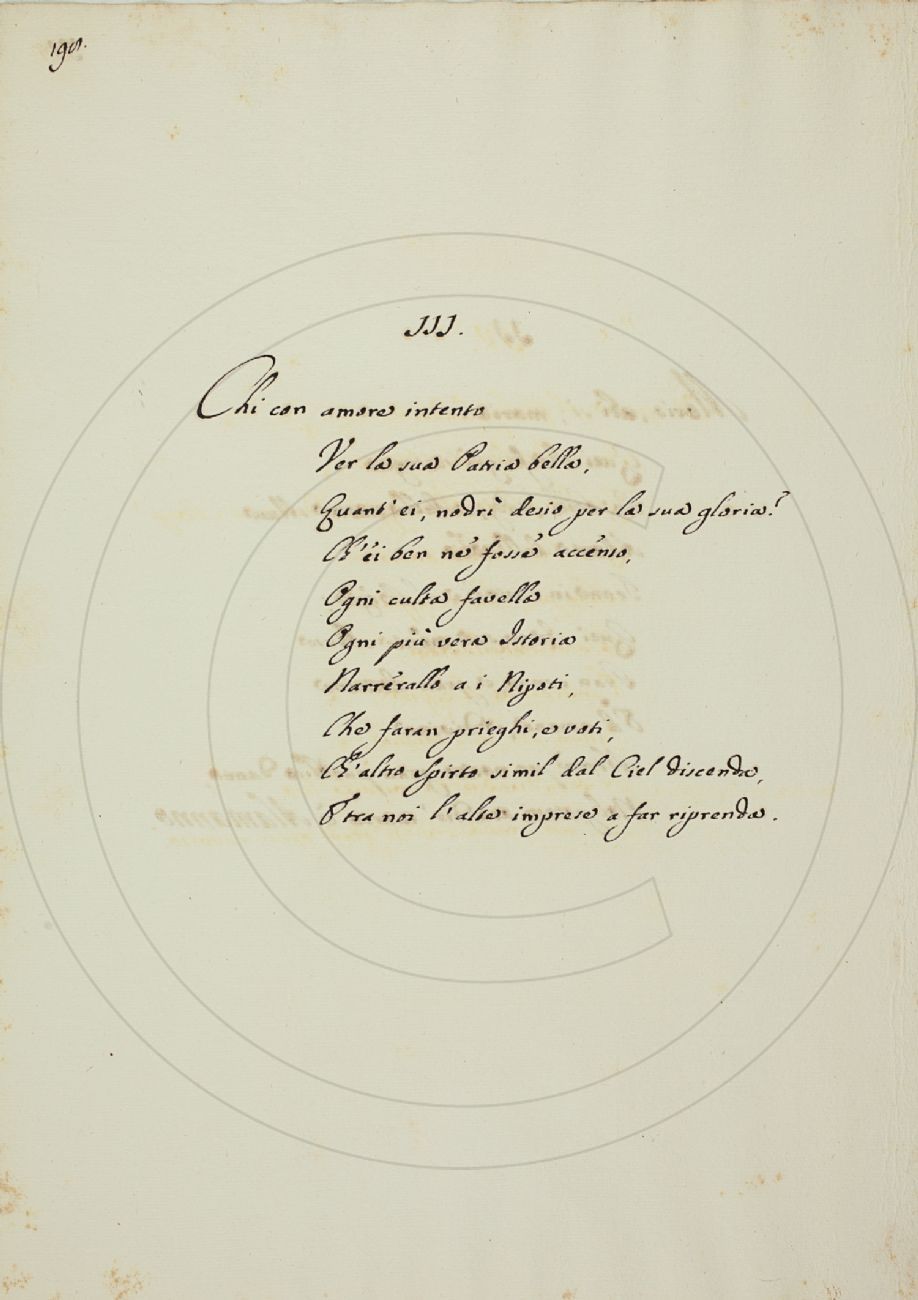 198.
III.
Chi con amore intento
Ver la sua Patria bella,
Quant' ei, nodrì desio per la sua gloria?
Ch'ei ben ne fosse accenso,
Ogni culta favella
Ogni più vera Istoria
Narrerallo a i Nipoti,
Che faran prieghi, e voti,
Ch'altro Spirto simil dal Ciel discenda,
E tra noi l'alte imprese a far riprenda.